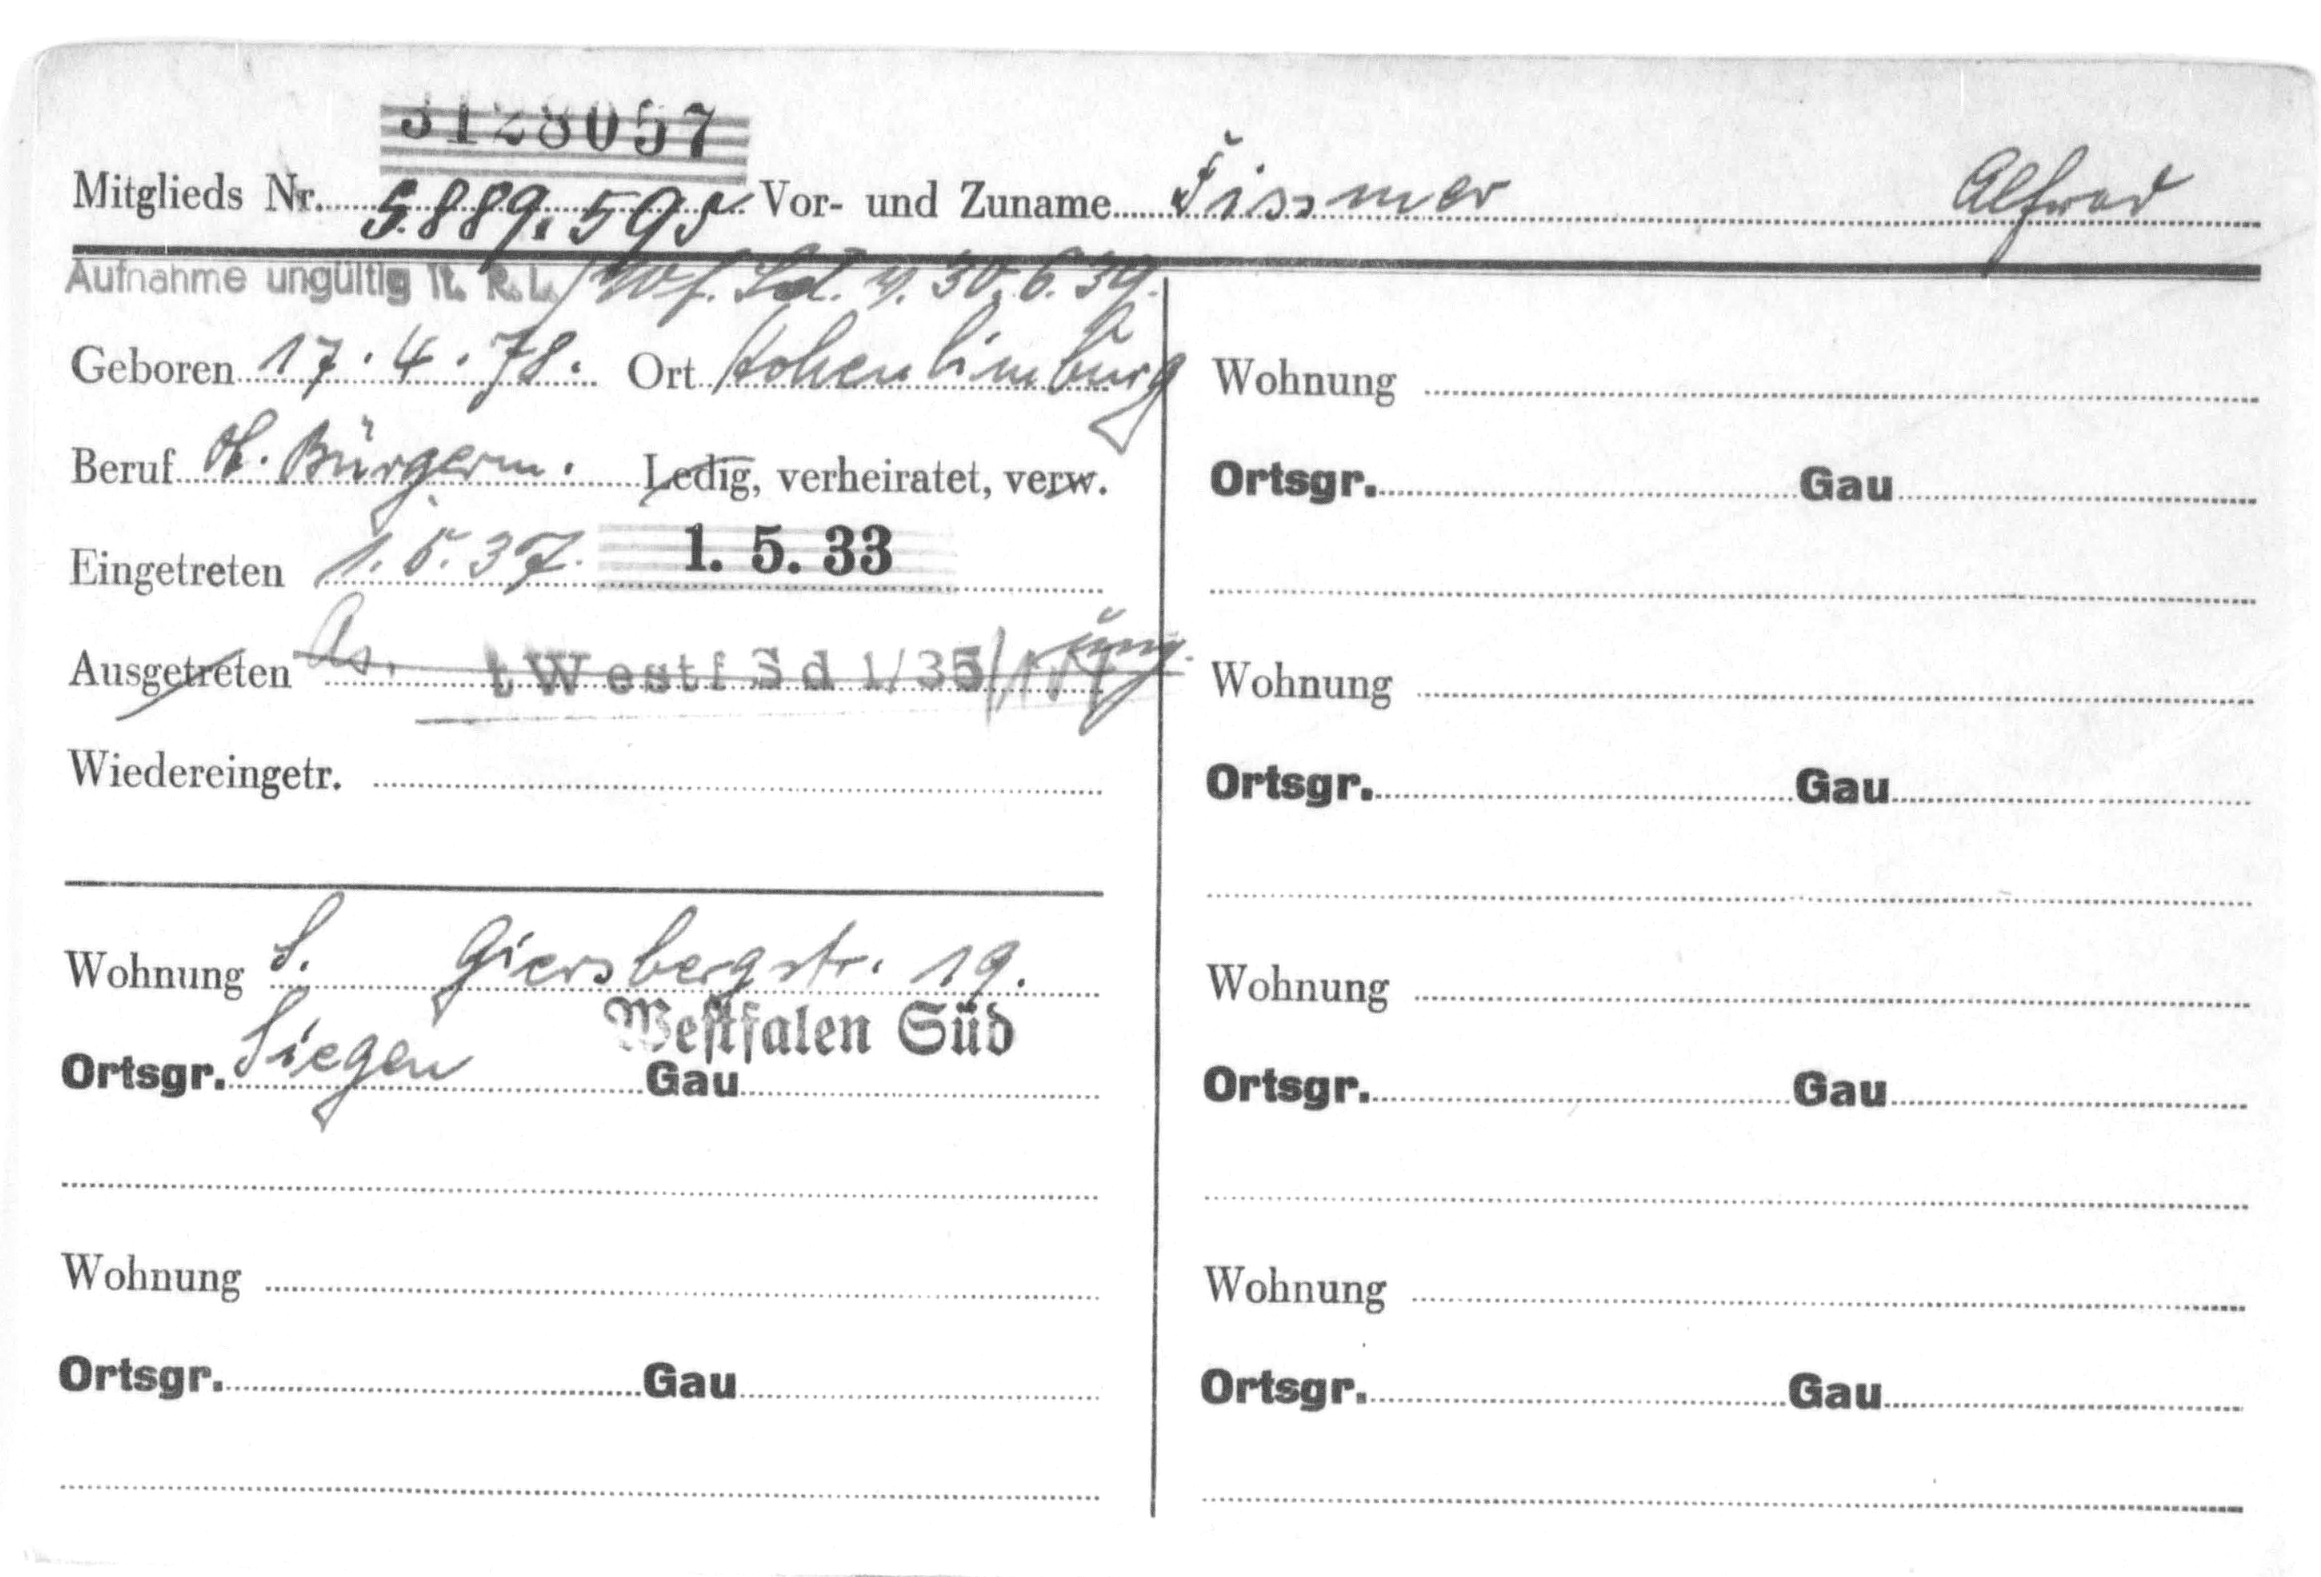 3128057
Mitglieds Nr. 5.889.595 Vor- und Zuname Fissmer Alfred
Aufnahme ungültig lt. R.L./Wf. Sd. v. 30.6.39.
Geboren 17.4.78. Ort Hohenlimburg
Beruf Ob. Bürgerm. Ledig, verheiratet, verw.
Eingetreten 1.5.37. 1. 5. 33
Ausgetreten lt Westf Sd 1/35/
Wiedereingetr.
Wohnung S. Giersbergstr. 19.
Westfalen Süd
Ortsgr. Siegen Gau
Wohnung
Ortsgr. Gau
Wohnung
Ortsgr. Gau
Wohnung
Ortsgr. Gau
Wohnung
Ortsgr. Gau
Wohnung
Ortsgr. Gau